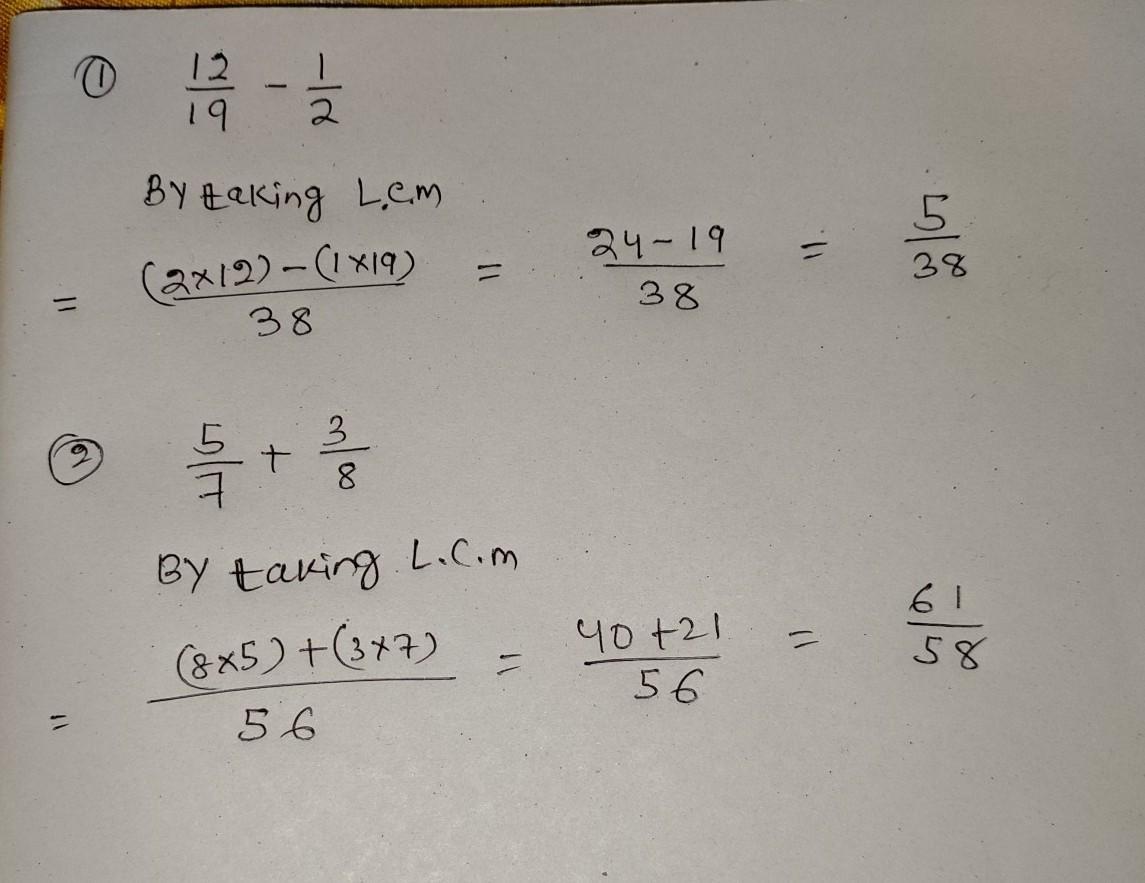 ① 12/19 - 1/2
By taking L.C.m
= (2×12)-(1×19)/38 = 24-19/38 = 5/38
② 5/7 + 3/8
By taking L.C.m
= (8×5)+(3×7)/56 = 40+21/56 = 61/58